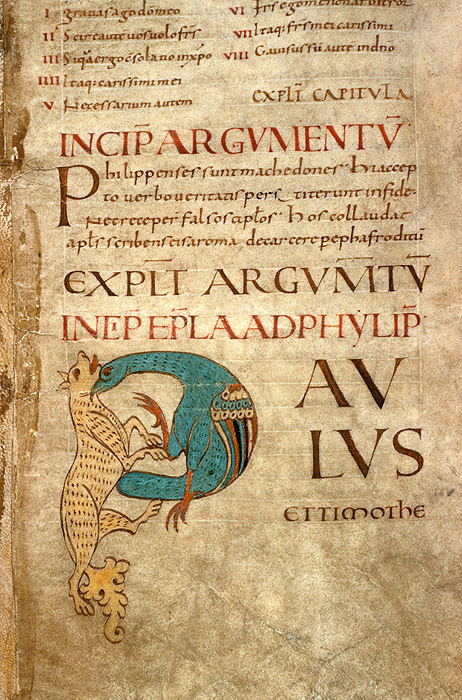 I gratias ago do meo
II Scire aute vos volo frs
III Siqua ergo consolatio in xpo
IIII Itaq: carissimi mei
V Necessarium autem
VI
VII Itaq: frs mei carissimi
VIII Gavisus su aute in dno
EXPLT CAPITULA
INCIP ARGVMENTV
Philippenses sunt machedones hi accep
to verbo veritatis perstiterunt in fide
Nec receper falsos aplos hos collaudat
apls scribens eis a roma de carcere pep hafroditu
EXPLT ARGVMTV
INCIP EPLA AD PHYLIP
PAV
LVS
ET TIMOTHE